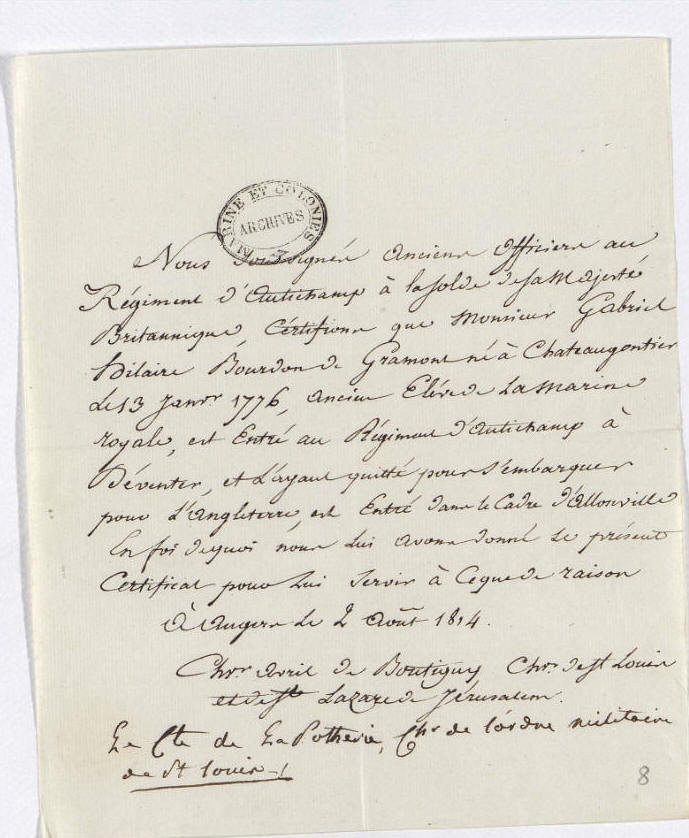 MARINE ET COLONIES
ARCHIVES
Nous soussignés anciens officiers au
Régiment d'Autichamp à la solde de sa Majesté
Britannique, Certifions que Monsieur Gabriel
hilaire Bourdon de Gramont né à Chateaugontier
Le 13 Janvr 1776, ancien Elève de La Marine
royale, est Entré au Régiment d'Autichamp à
Déventer, et L'ayant quitté pour s'embarquer
pour L'angleterre, est Entré dans le Cadre d'allonville
En foi de quoi nous Lui avons donné Le présent
Certificat pour Lui servir à Ce que de raison
À Angers Le 2 Août 1814.
Chr. avril de Boutigny Chr. de st Louis
et de st Lazare de Jérusalem.
Le Cte de La Potherie, Chr de l'ordre militaire
de st Louis
8